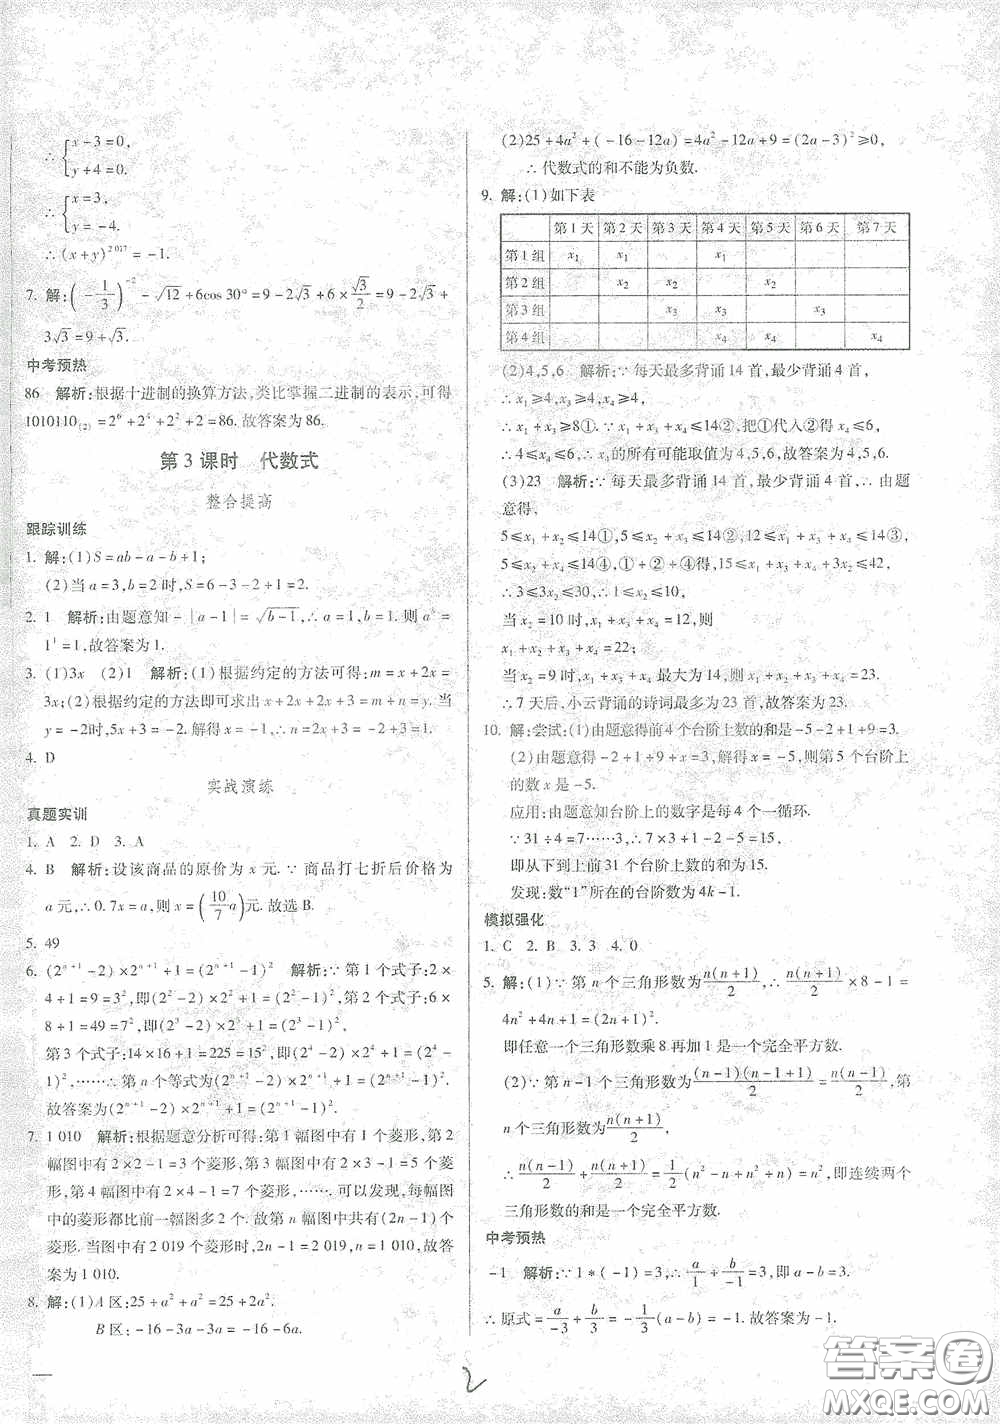 ∴ { x-3=0,
y+4=0.
∴ { x=3,
y=-4.
∴ (x+y)^2017=-1.
7. 解:(-1/3)^-2-√12+6cos 30°=9-2√3+6×√3/2=9-2√3+
3√3=9+√3.
中考预热
86 解析:根据十进制的换算方法,类比掌握二进制的表示,可得
1010110(2)=2^6+2^4+2^2+2=86.故答案为86.
第3课时 代数式
整合提高
跟踪训练
1. 解:(1)S=ab-a-b+1;
(2)当a=3,b=2时,S=6-3-2+1=2.
2. 1 解析:由题意知-|a-1|=√(b-1),∴a=1,b=1.则a^b=
1^1=1.故答案为1.
3. (1)3x (2)1 解析:(1)根据约定的方法可得:m=x+2x=
3x;(2)根据约定的方法即可求出x+2x+2x+3=m+n=y.当
y=-2时,5x+3=-2.解得x=-1.∴n=2x+3=-2+3=1.
4. D
实战演练
真题实训
1. A 2. D 3. A
4. B 解析:设该商品的原价为x元.∵商品打七折后价格为
a元,∴0.7x=a,则x=(10/7a)元.故选B.
5. 49
6. (2^(n+1)-2)×2^(n+1)+1=(2^(n+1)-1)^2 解析:∵第1个式子:2×
4+1=9=3^2,即(2^2-2)×2^2+1=(2^2-1)^2,第2个式子:6×
8+1=49=7^2,即(2^3-2)×2^3+1=(2^3-1)^2,
第3个式子:14×16+1=225=15^2,即(2^4-2)×2^4+1=(2^4-
1)^2,……∴第n个等式为(2^(n+1)-2)×2^(n+1)+1=(2^(n+1)-1)^2.
故答案为(2^(n+1)-2)×2^(n+1)+1=(2^(n+1)-1)^2.
7. 1 010 解析:根据题意分析可得:第1幅图中有1个菱形,第2
幅图中有2×2-1=3个菱形,第3幅图中有2×3-1=5个菱
形,第4幅图中有2×4-1=7个菱形,…….可以发现,每幅图
中的菱形都比前一幅图多2个.故第n幅图中共有(2n-1)个
菱形.当图中有2 019个菱形时,2n-1=2 019,n=1 010,故答
案为1 010.
8. 解:(1)A区:25+a^2+a^2=25+2a^2.
B区:-16-3a-3a=-16-6a.
(2)25+4a^2+(-16-12a)=4a^2-12a+9=(2a-3)^2≥0,
∴代数式的和不能为负数.
9. 解:(1)如下表
第1天 第2天 第3天 第4天 第5天 第6天 第7天
第1组 x1 x1 x1
第2组 x2 x2 x2
第3组 x3 x3 x3
第4组 x4 x4 x4
(2)4,5,6 解析:∵每天最多背诵14首,最少背诵4首,
∴x1≥4,x3≥4,x4≥4,
∴x1+x3≥8①.∵x1+x3+x4≤14②,把①代入②得x4≤6,
∴4≤x4≤6,∴x4的所有可能取值为4,5,6,故答案为4,5,6.
(3)23 解析:∵每天最多背诵14首,最少背诵4首,∴由题
意得,
5≤x1+x2≤14①,5≤x2+x3≤14②,5≤x1+x3+x4≤14③,
5≤x2+x4≤14④,①+②+④-③得,15≤x1+x2+x3≤42,
∴3≤3x2≤30,∴1≤x2≤10,
当x2=10时,x1+x3+x4=12,则
x1+x2+x3+x4=22;
当x2=9时,x1+x3+x4最大为14,则x1+x2+x3+x4=23.
∴7天后,小云背诵的诗词最多为23首,故答案为23.
10. 解:尝试:(1)由题意得前4个台阶上数的和是-5-2+1+9=3.
(2)由题意得-2+1+9+x=3,解得x=-5,则第5个台阶上
的数x是-5.
应用:由题意知台阶上的数字是每4个一循环.
∵31÷4=7……3,∴7×3+1-2-5=15,
即从下到上前31个台阶上数的和为15.
发现:数“1”所在的台阶数为4k-1.
模拟强化
1. C 2. B 3. 3 4. 0
5. 解:(1)∵第n个三角形数=n(n+1)/2,∴n(n+1)/2×8-1=
4n^2+4n+1=(2n+1)^2.
即任意一个三角形数乘8再加1是一个完全平方数.
(2)∵第n-1个三角形数为(n-1)(n-1+1)/2=n(n-1)/2,第
n个三角形数为n(n+1)/2,
∴n(n-1)/2+n(n+1)/2=(n^2-n+n^2+n)=n^2,即连续两个
三角形数的和是一个完全平方数.
中考预热
-1 解析:∵1*(-1)=3,∴a/1+b/-1=3,即a-b=3.
∴原式=a/-3+b/3=-1/3(a-b)=-1.故答案为-1.
2
答案圈
MXQE.COM